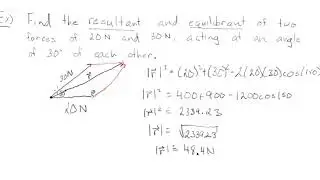 Ex) Find the resultant and equilibrant of two
forces of 20N and 30N, acting at an angle
of 30° of each other.
30N
r
θ
20N
|r|² = (20)²+(30)²-2(20)(30)cos(150)
|r|² = 400+900-1200cos150
|r|² = 2339.23
|r| = √2339.23
|r| = 48.4N